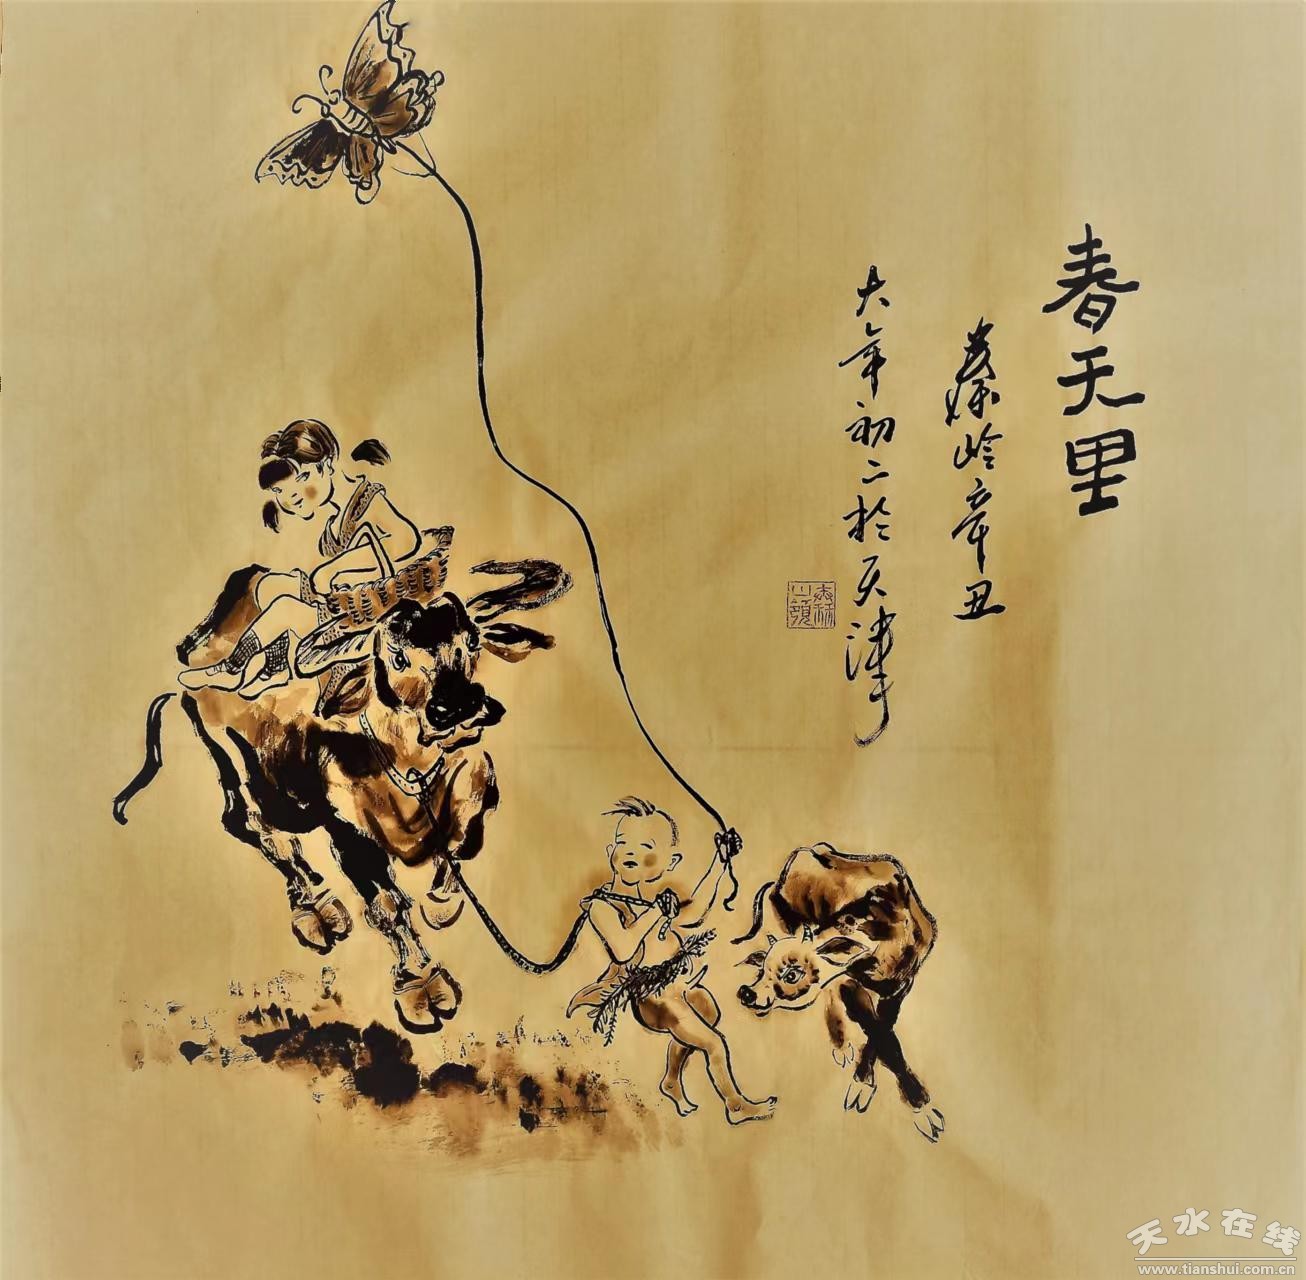 春天里
岭辛丑
大年初二於天津
天水在线
www.tianshui.com.cn